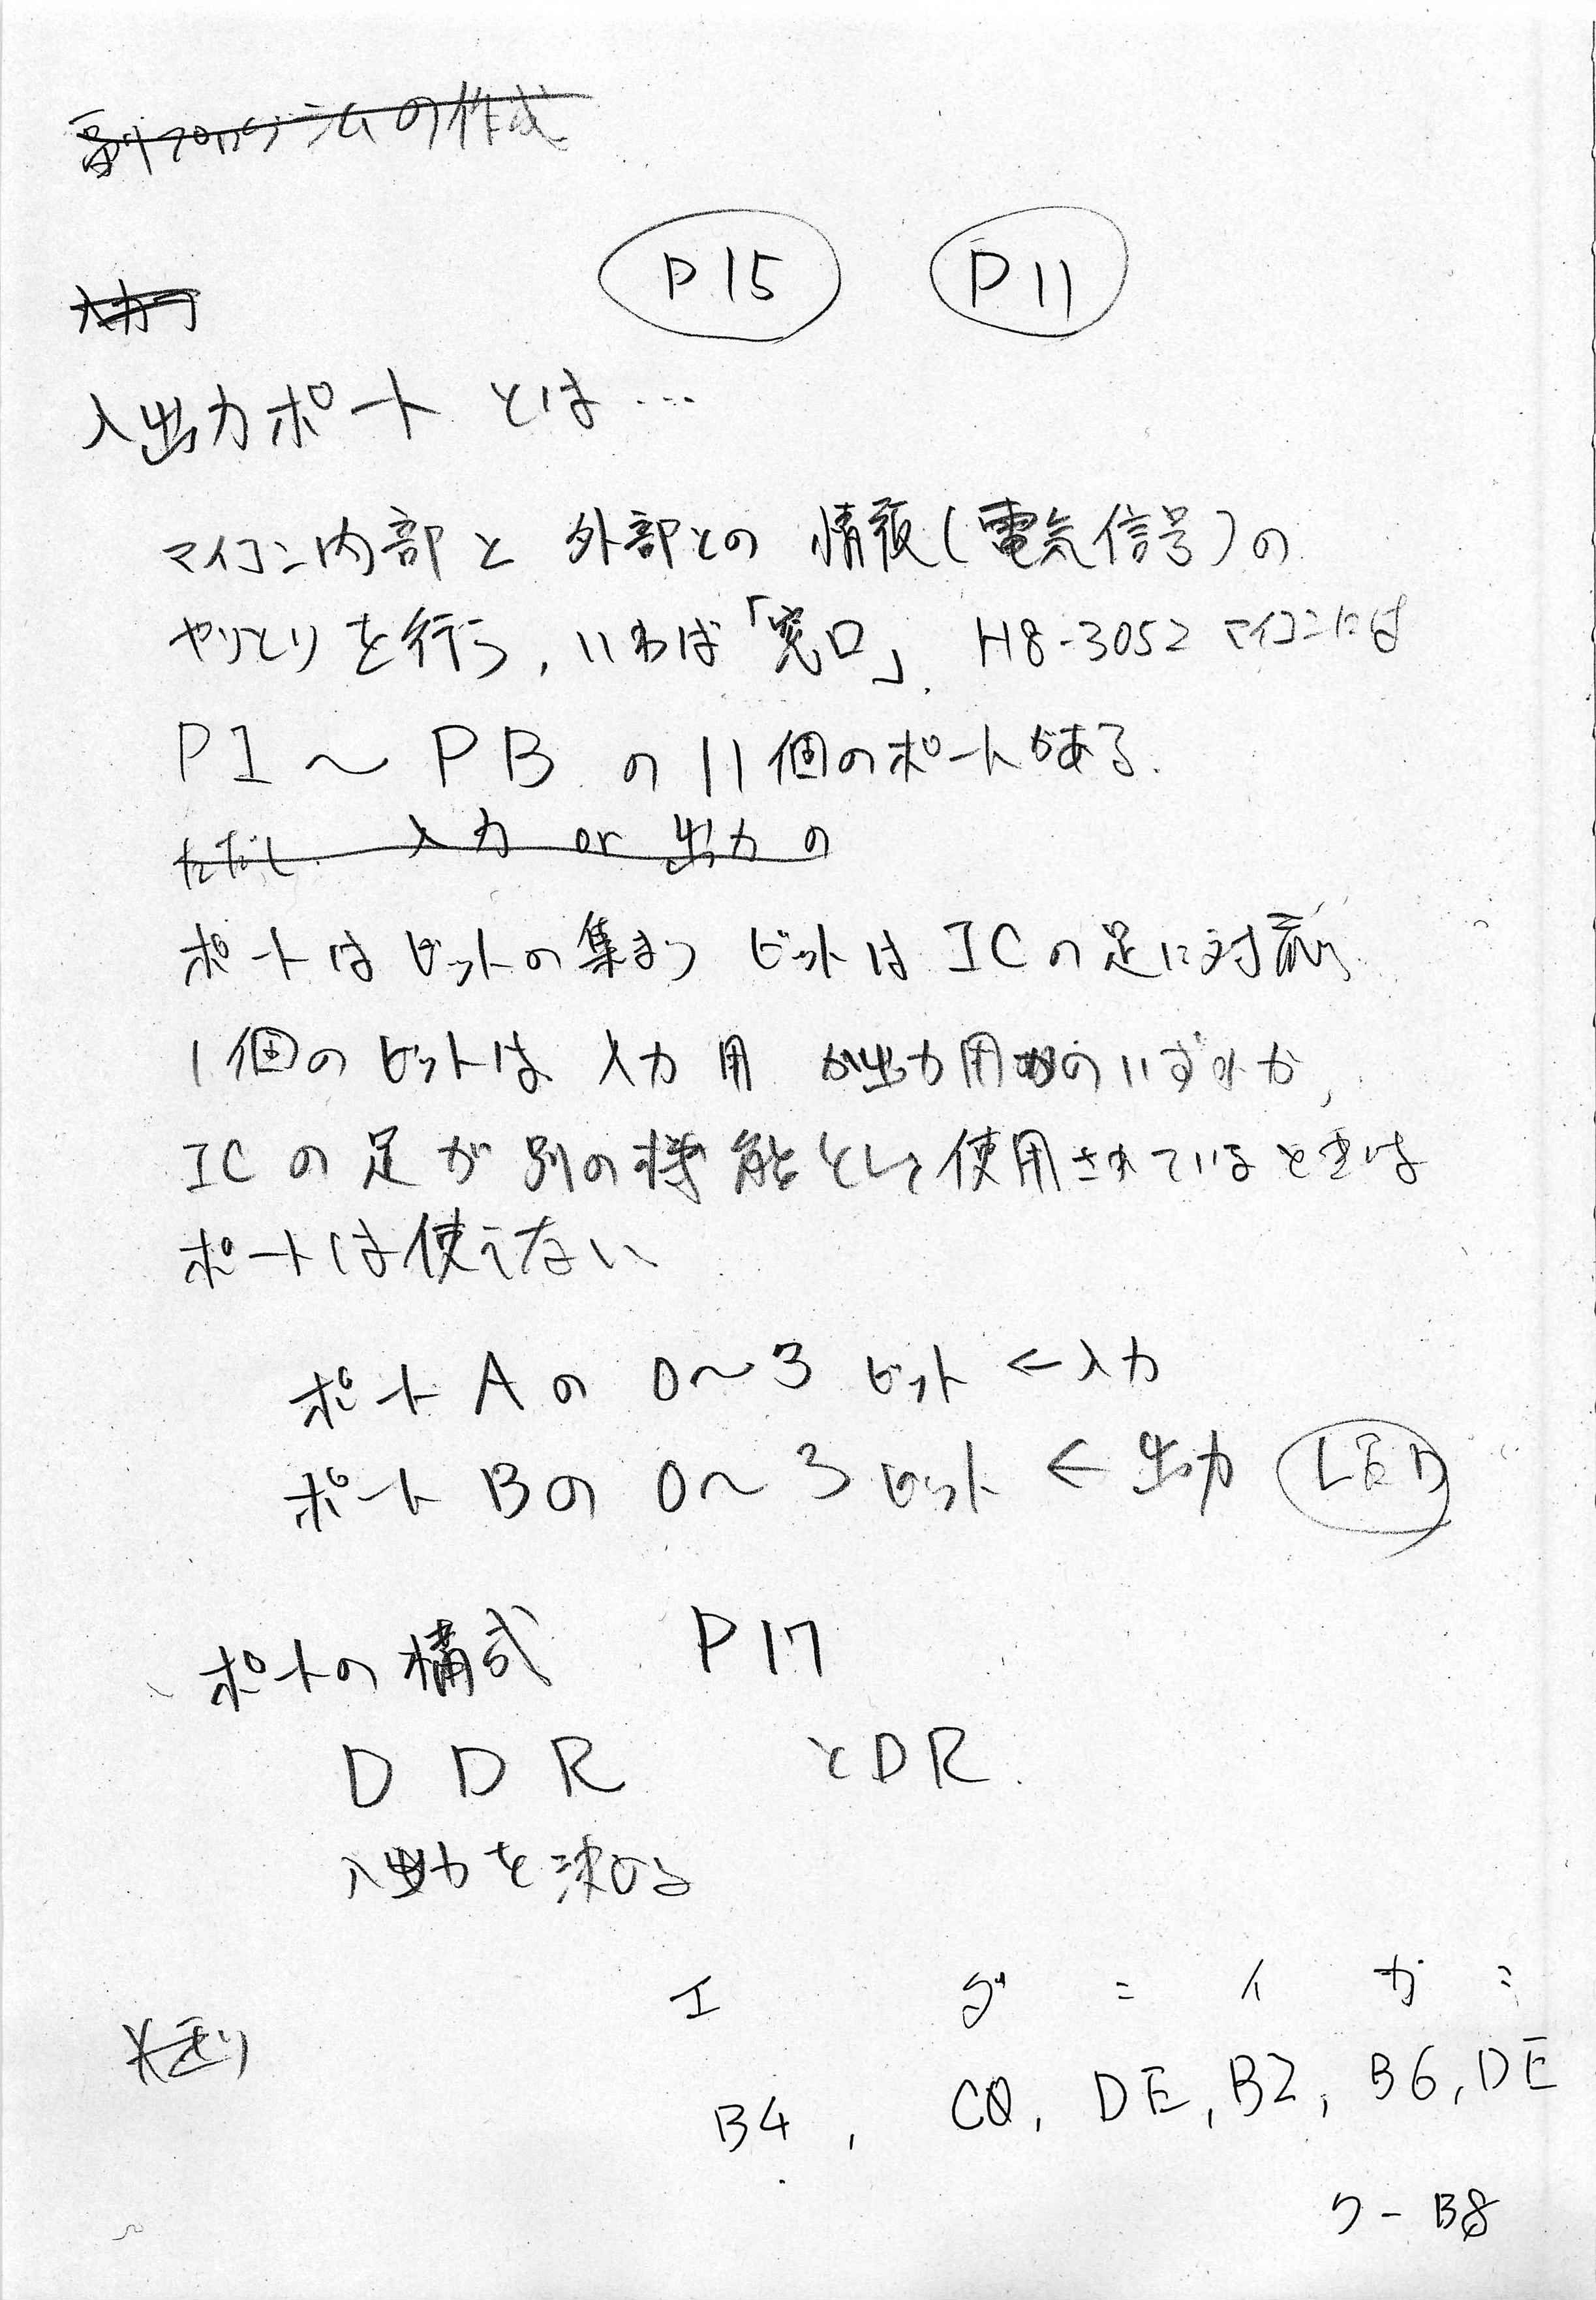 副プログラムの作成
P15 P11
入力
入出力ポート とは…
マイコン内部と 外部との 情報(電気信号)の
やりとりを行う, いわば「窓口」. H8-3052 マイコンには
P1 〜 PB の 11個のポートがある.
ただし 入力 or 出力 の
ポートはビットの集まり ビットは ICの足に対応
1個のビットは 入力用 か出力用かのいずれか,
ICの足が別の機能として使用されているときは
ポートは使えない
ポート Aの 0〜3 ビット ←入力
ポート Bの 0〜3 ビット ← 出力 LED
ポートの構成 P17
DDR とDR.
入出力を決める
エ ダ ン イ カ ン
B4, C0, DE, B2, B6, DE
ク - B8